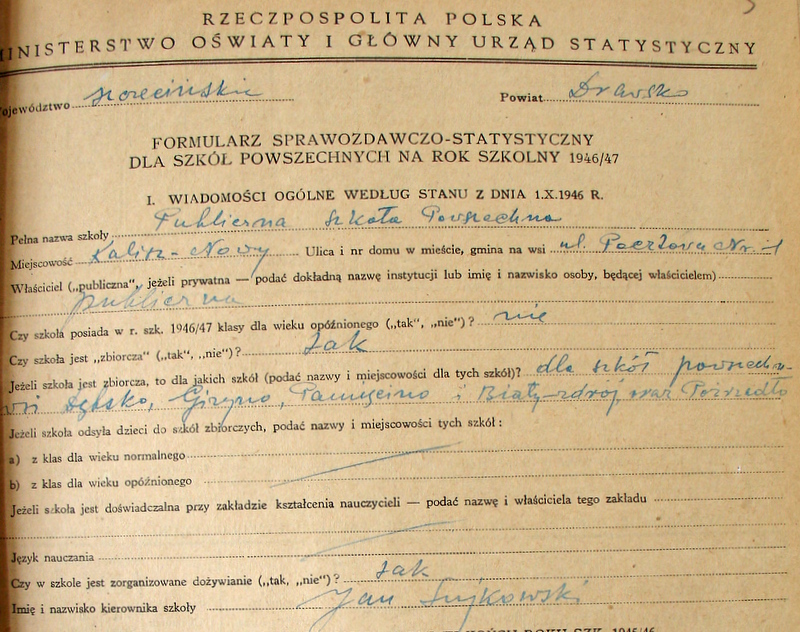 RZECZPOSPOLITA POLSKA
MINISTERSTWO OŚWIATY I GŁÓWNY URZĄD STATYSTYCZNY
ojewództwo szczecińskie Powiat Drawsko
FORMULARZ SPRAWOZDAWCZO-STATYSTYCZNY
DLA SZKÓŁ POWSZECHNYCH NA ROK SZKOLNY 1946/47
I. WIADOMOŚCI OGÓLNE WEDŁUG STANU Z DNIA 1.X.1946 R.
Pełna nazwa szkoły Publiczna Szkoła Powszechna
Miejscowość Kalisz-Nowy Ulica i nr domu w mieście, gmina na wsi ul. Pocztowa Nr. 1
Właściciel („publiczna", jeżeli prywatna — podać dokładną nazwę instytucji lub imię i nazwisko osoby, będącej właścicielem)
publiczna
Czy szkoła posiada w r. szk. 1946/47 klasy dla wieku opóźnionego („tak", „nie")? nie
Czy szkoła jest „zbiorcza" („tak", „nie")? tak
Jeżeli szkoła jest zbiorcza, to dla jakich szkół (podać nazwy i miejscowości dla tych szkół)? dla szkół powszechn.
wsi Dębsko, Giżyno, Pamięcino i Biały-zdrój oraz Poźrzadło
Jeżeli szkoła odsyła dzieci do szkół zbiorczych, podać nazwy i miejscowości tych szkół:
a) z klas dla wieku normalnego
b) z klas dla wieku opóźnionego
Jeżeli szkoła jest doświadczalna przy zakładzie kształcenia nauczycieli — podać nazwę i właściciela tego zakładu
Język nauczania
Czy w szkole jest zorganizowane dożywianie („tak, „nie")? tak
Imię i nazwisko kierownika szkoły Jan